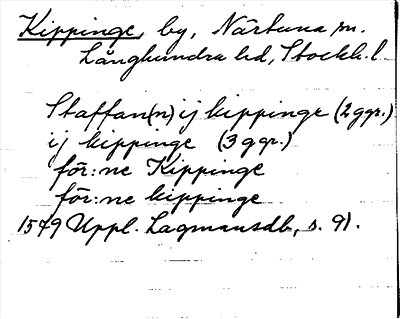 Kippinge, by, Närtuna sn.
Långhundra hd, Stockh. l.
Staffan(n) ij kippinge (2 ggr.)
ij kippinge (3 ggr.)
för:ne Kippinge
för:ne kippinge
1579 Uppl. Lagmansdb, s. 91.